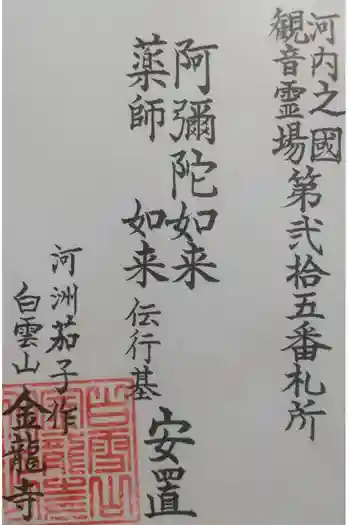 河内之國
觀音霊場第弐拾五番札所
阿彌陀如来
薬師如来伝行基
安置
河洲茄子作
白雲山金龍寺